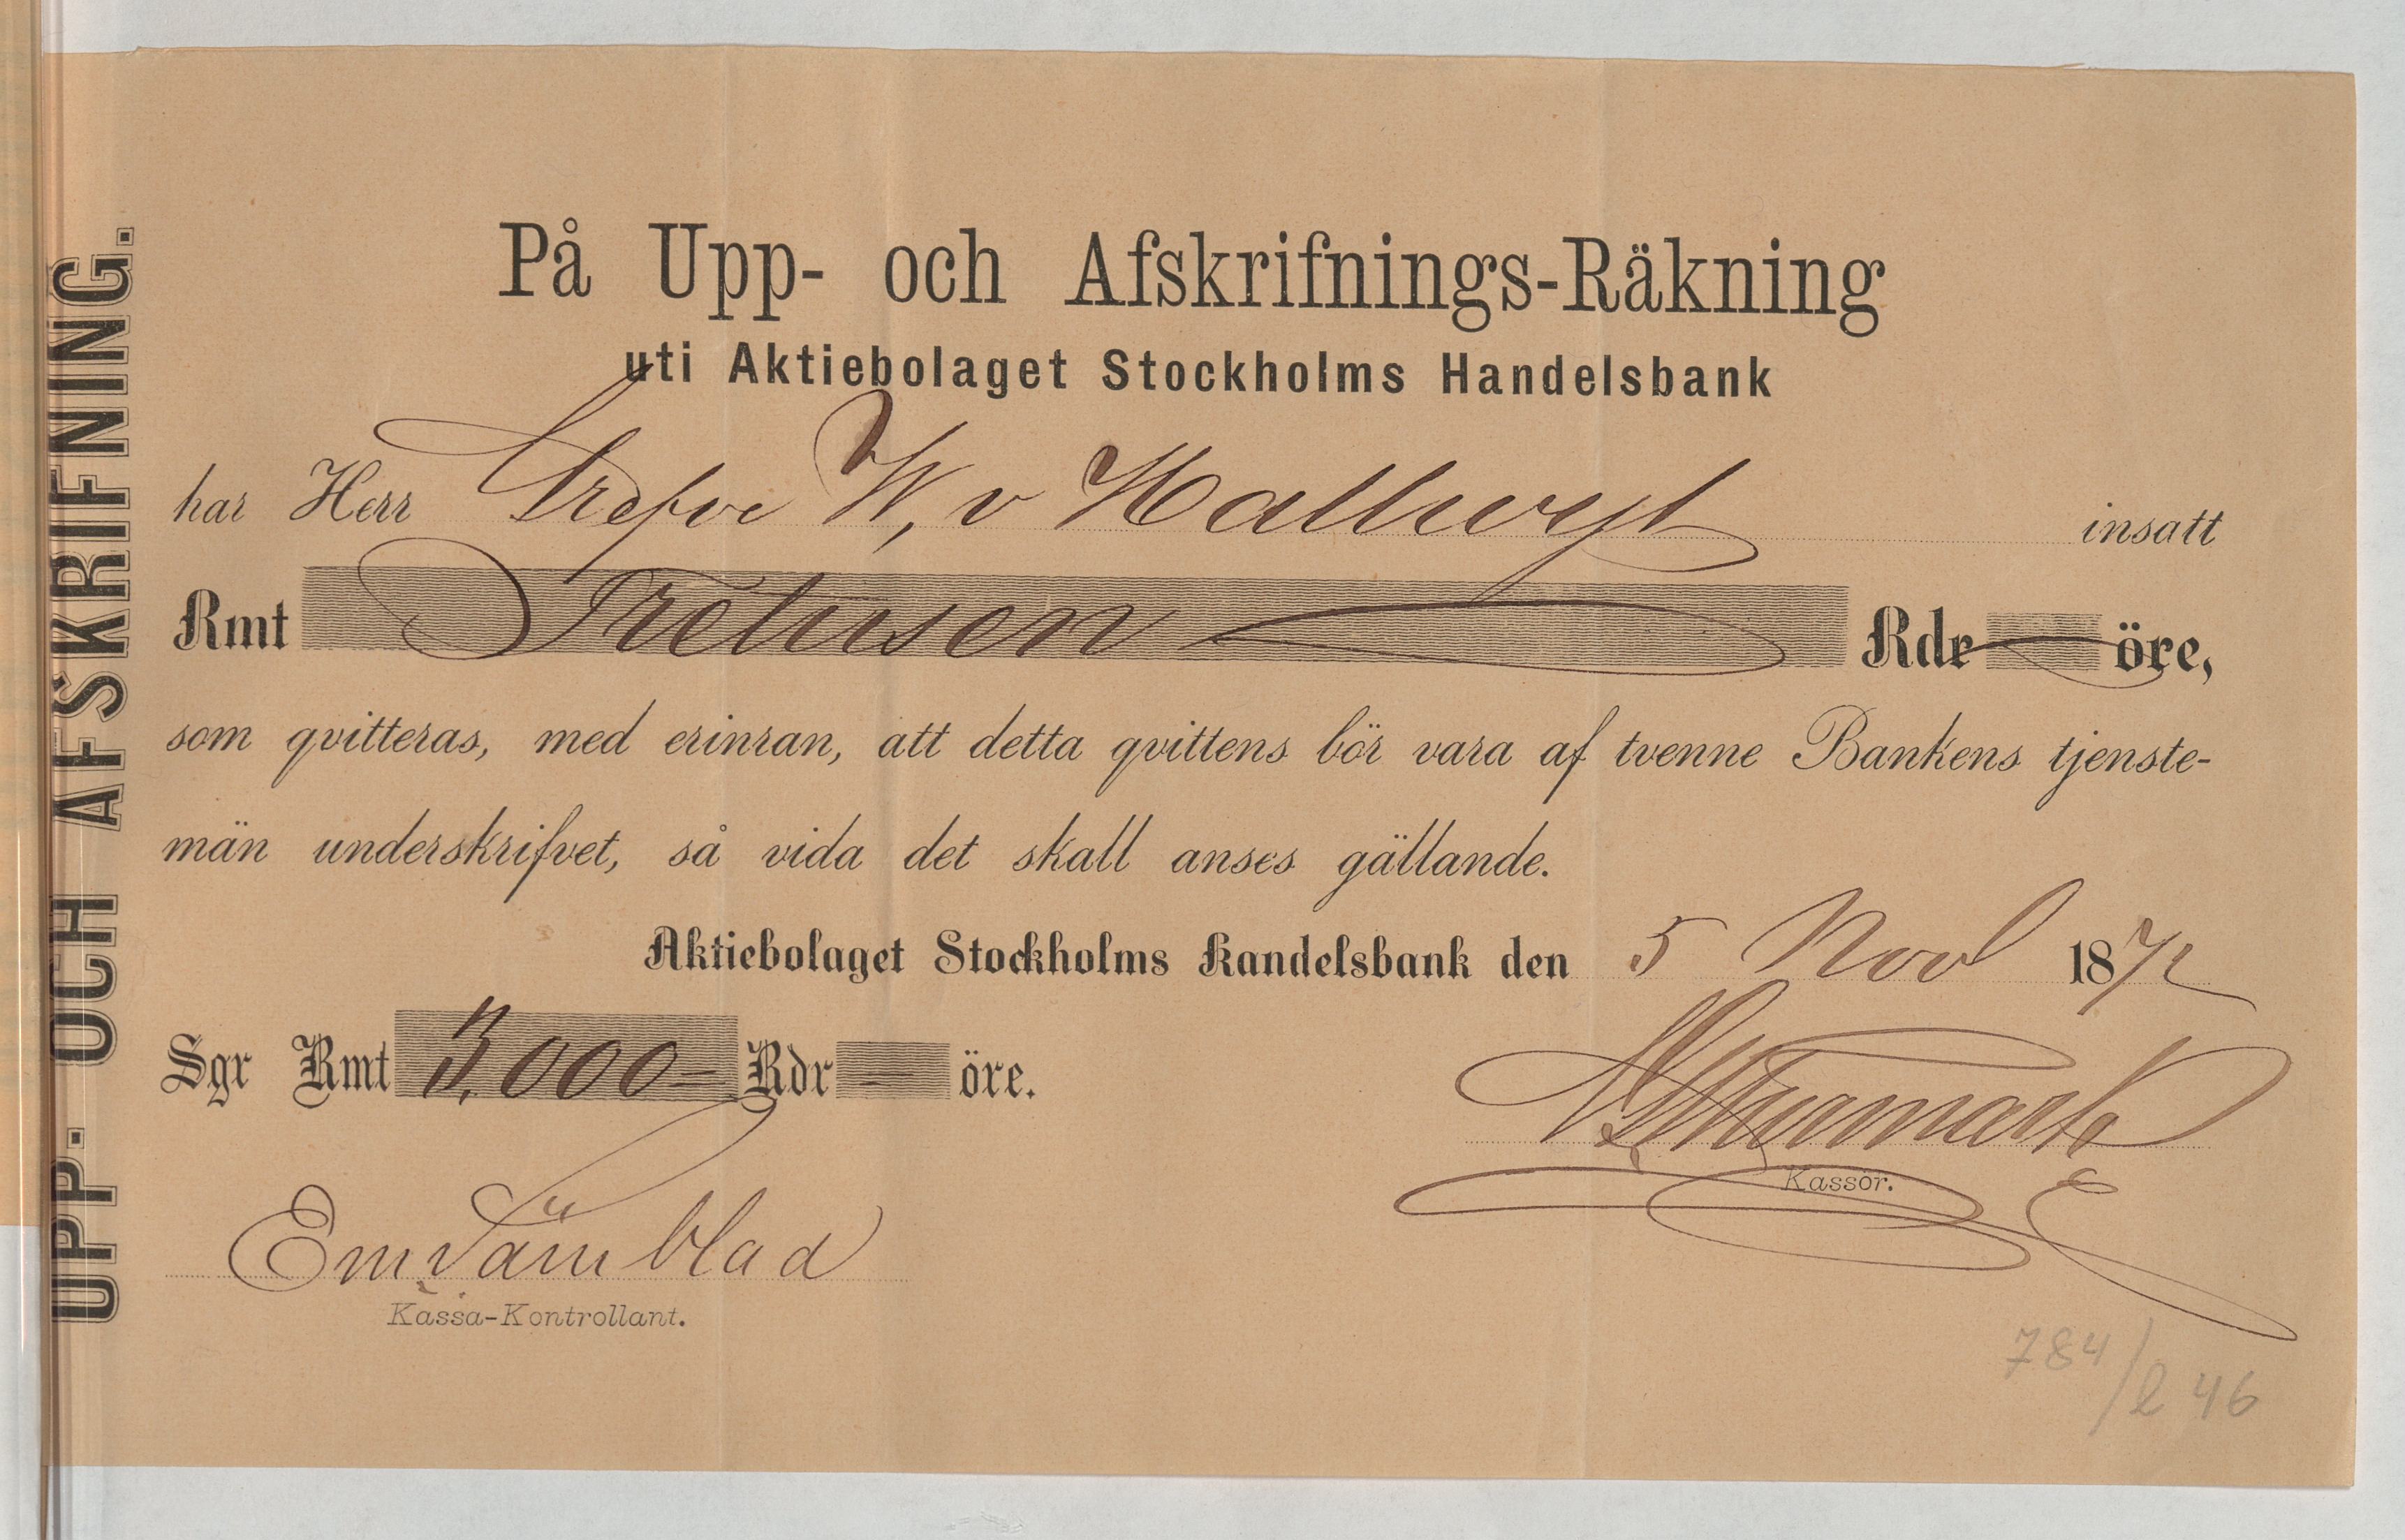 UPP- OCH AFSKRIFNING.
På Upp- och Afskrifnings-Räkning
uti Aktiebolaget Stockholms Handelsbank
har Herr Grefve W, v Hallwyl insatt
Rmt Tretusen Rdr — öre,
som qvitteras, med erinran, att detta qvittens bör vara af tvenne Bankens tjenste-
män underskrifvet, så vida det skall anses gällande.
Aktiebolaget Stockholms Handelsbank den 5 Nov 1872
Sgr Rmt 3,000 — Rdr — öre.
Kassör.
Em
Kassa-Kontrollant.
784/2 46